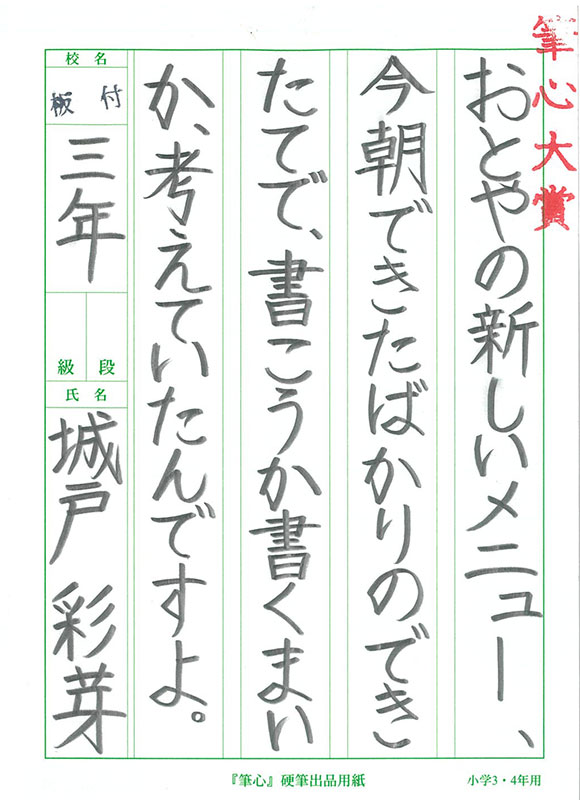 筆心大賞
おとやの新しいメニュー、
今朝できたばかりのでき
たてで、書こうか書くまい
か、考えていたんですよ。
校名
板付
三年
段
級
氏名
城戸 彩芽
『筆心』硬筆出品用紙
小学3・4年用